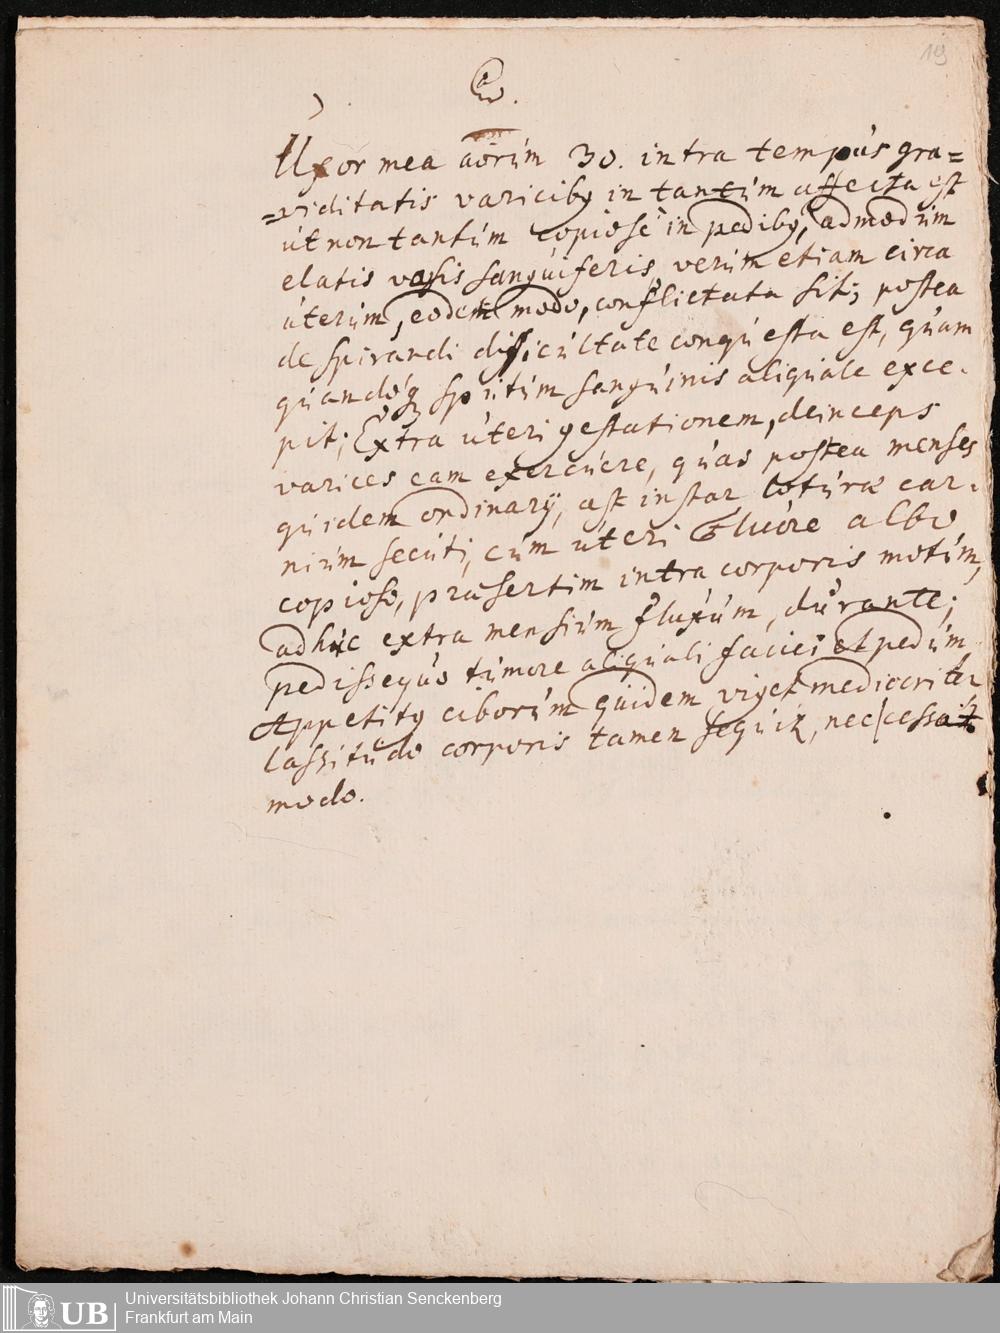 19
Uxor mea aorum 30. intra tempus gra=
=viditatis varicib9 in tantum affecta est
út non tantúm copiosè in pedib9, admodúm
elatis vasis sangúiferis, verúm etiam circa
úterúm, eodem modo, conflictata sit; postea
de spirandi difficúltate conqúesta est, qúam
qúandoq3 spútúm sangúinis aliquale exce-
pit; Extra úteri gestationem, deinceps
varices eam exercúere, qúas postea menses
qúidem ordinarij, ast instar lotúræ car-
niúm secúti, cúm úteri Flúore albo
copioso, præsertim intra corporis motúm,
adhúc extra mensiúm flúxúm, dúrante;
pedissequo túmore aliqúali faciei et pedúm,
Appetit9 ciborúm qúidem viget mediocriter
lassitúdo corporis tamen seqúitr, nec cessat
modo.
UB
Universitätsbibliothek Johann Christian Senckenberg
Frankfurt am Main